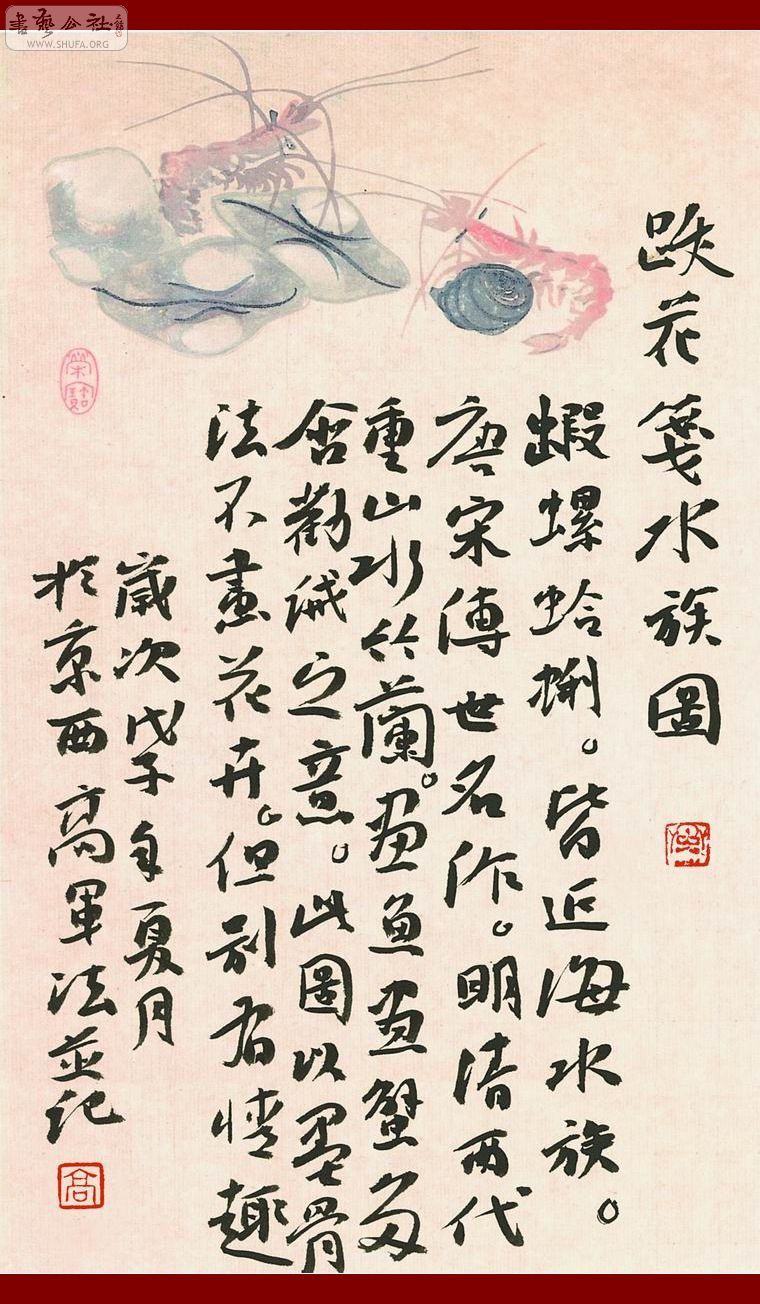 書藝公社
WWW.SHUFA.ORG
跋花箋水族圖
蝦螺蛤蜊。皆近海水族。
唐宋傳世名作。明清両代
重山水竹蘭。画魚画蟹多
含勸誡之意。此圖以墨骨
法不畫花卉。但別有情趣
歲次戊子年夏月
於京西高軍法並记
高
榮寶